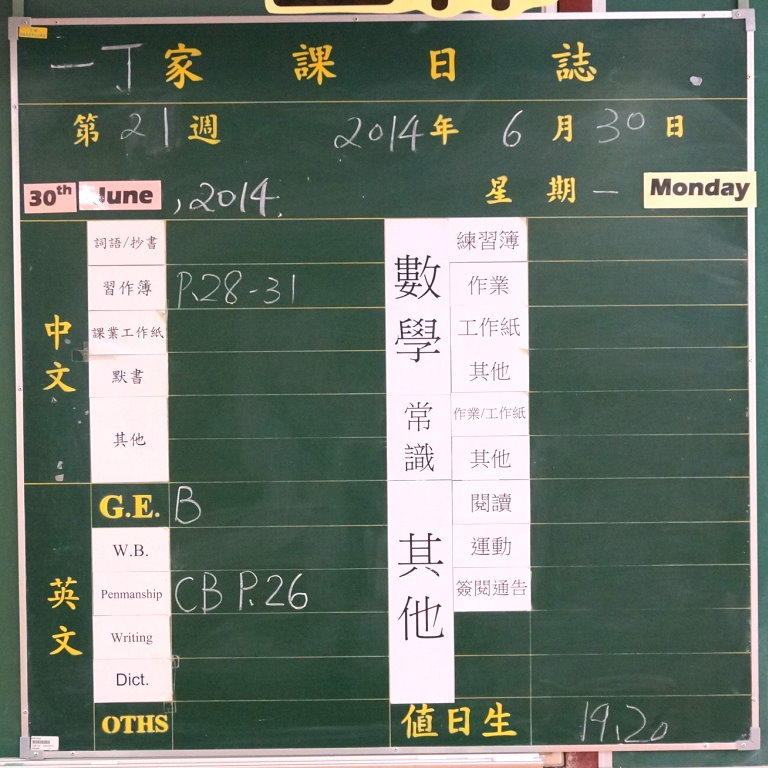 一丁家課日誌
第21週 2014年 6月30日
30th June, 2014. 星期一 Monday
中文
詞語/抄書
習作簿 P.28-31
課業工作紙
默書
其他
英文
G.E. B
W.B.
Penmanship CB P.26
Writing
Dict.
OTHS
數學
練習簿
作業
工作紙
其他
常識
作業/工作紙
其他
其他
閱讀
運動
簽閱通告
值日生 19,20